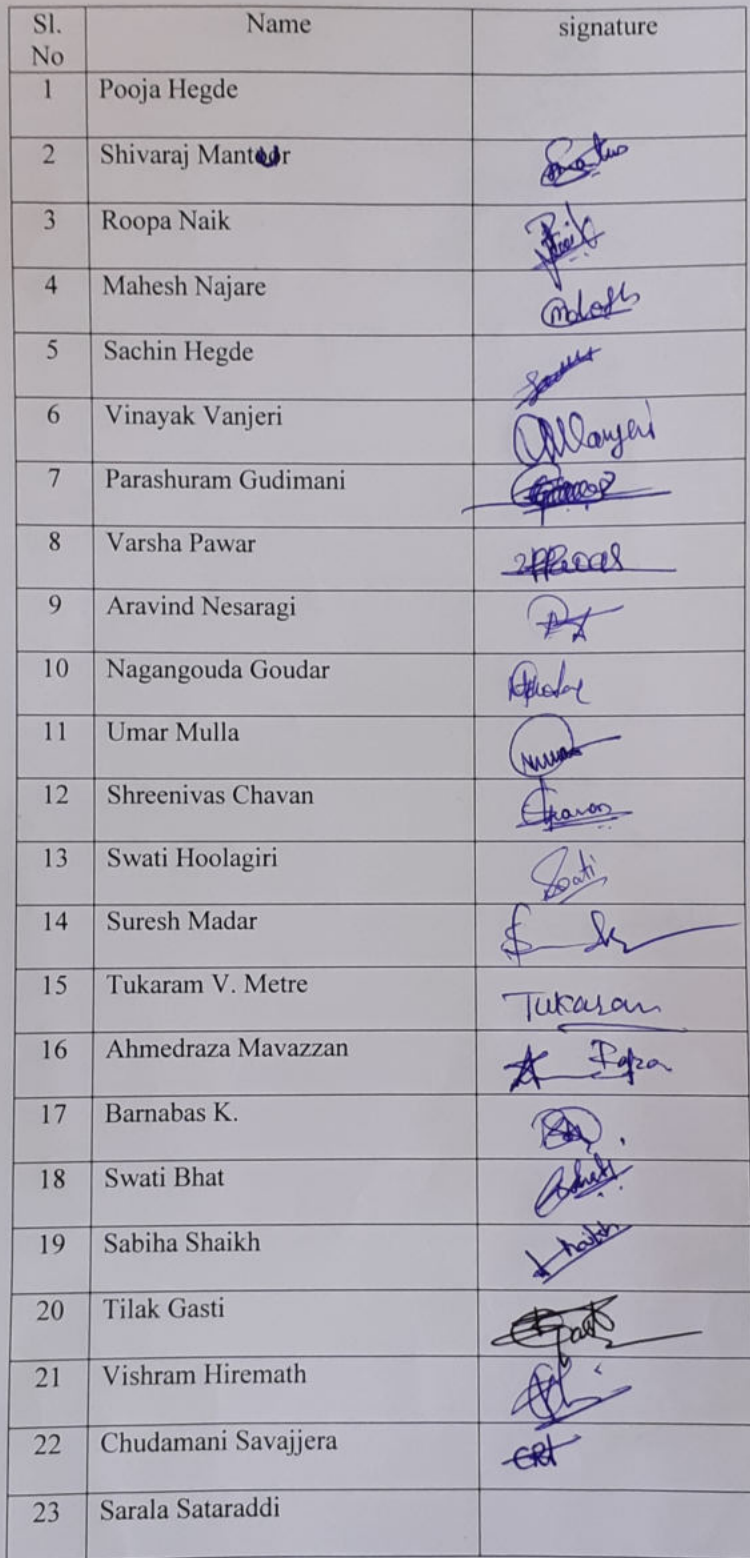 Sl. No Name signature
1 Pooja Hegde
2 Shivaraj Mantoor
3 Roopa Naik
4 Mahesh Najare
5 Sachin Hegde
6 Vinayak Vanjeri
7 Parashuram Gudimani
8 Varsha Pawar
9 Aravind Nesaragi
10 Nagangouda Goudar
11 Umar Mulla
12 Shreenivas Chavan
13 Swati Hoolagiri
14 Suresh Madar
15 Tukaram V. Metre
16 Ahmedraza Mavazzan
17 Barnabas K.
18 Swati Bhat
19 Sabiha Shaikh
20 Tilak Gasti
21 Vishram Hiremath
22 Chudamani Savajjera
23 Sarala Sataraddi